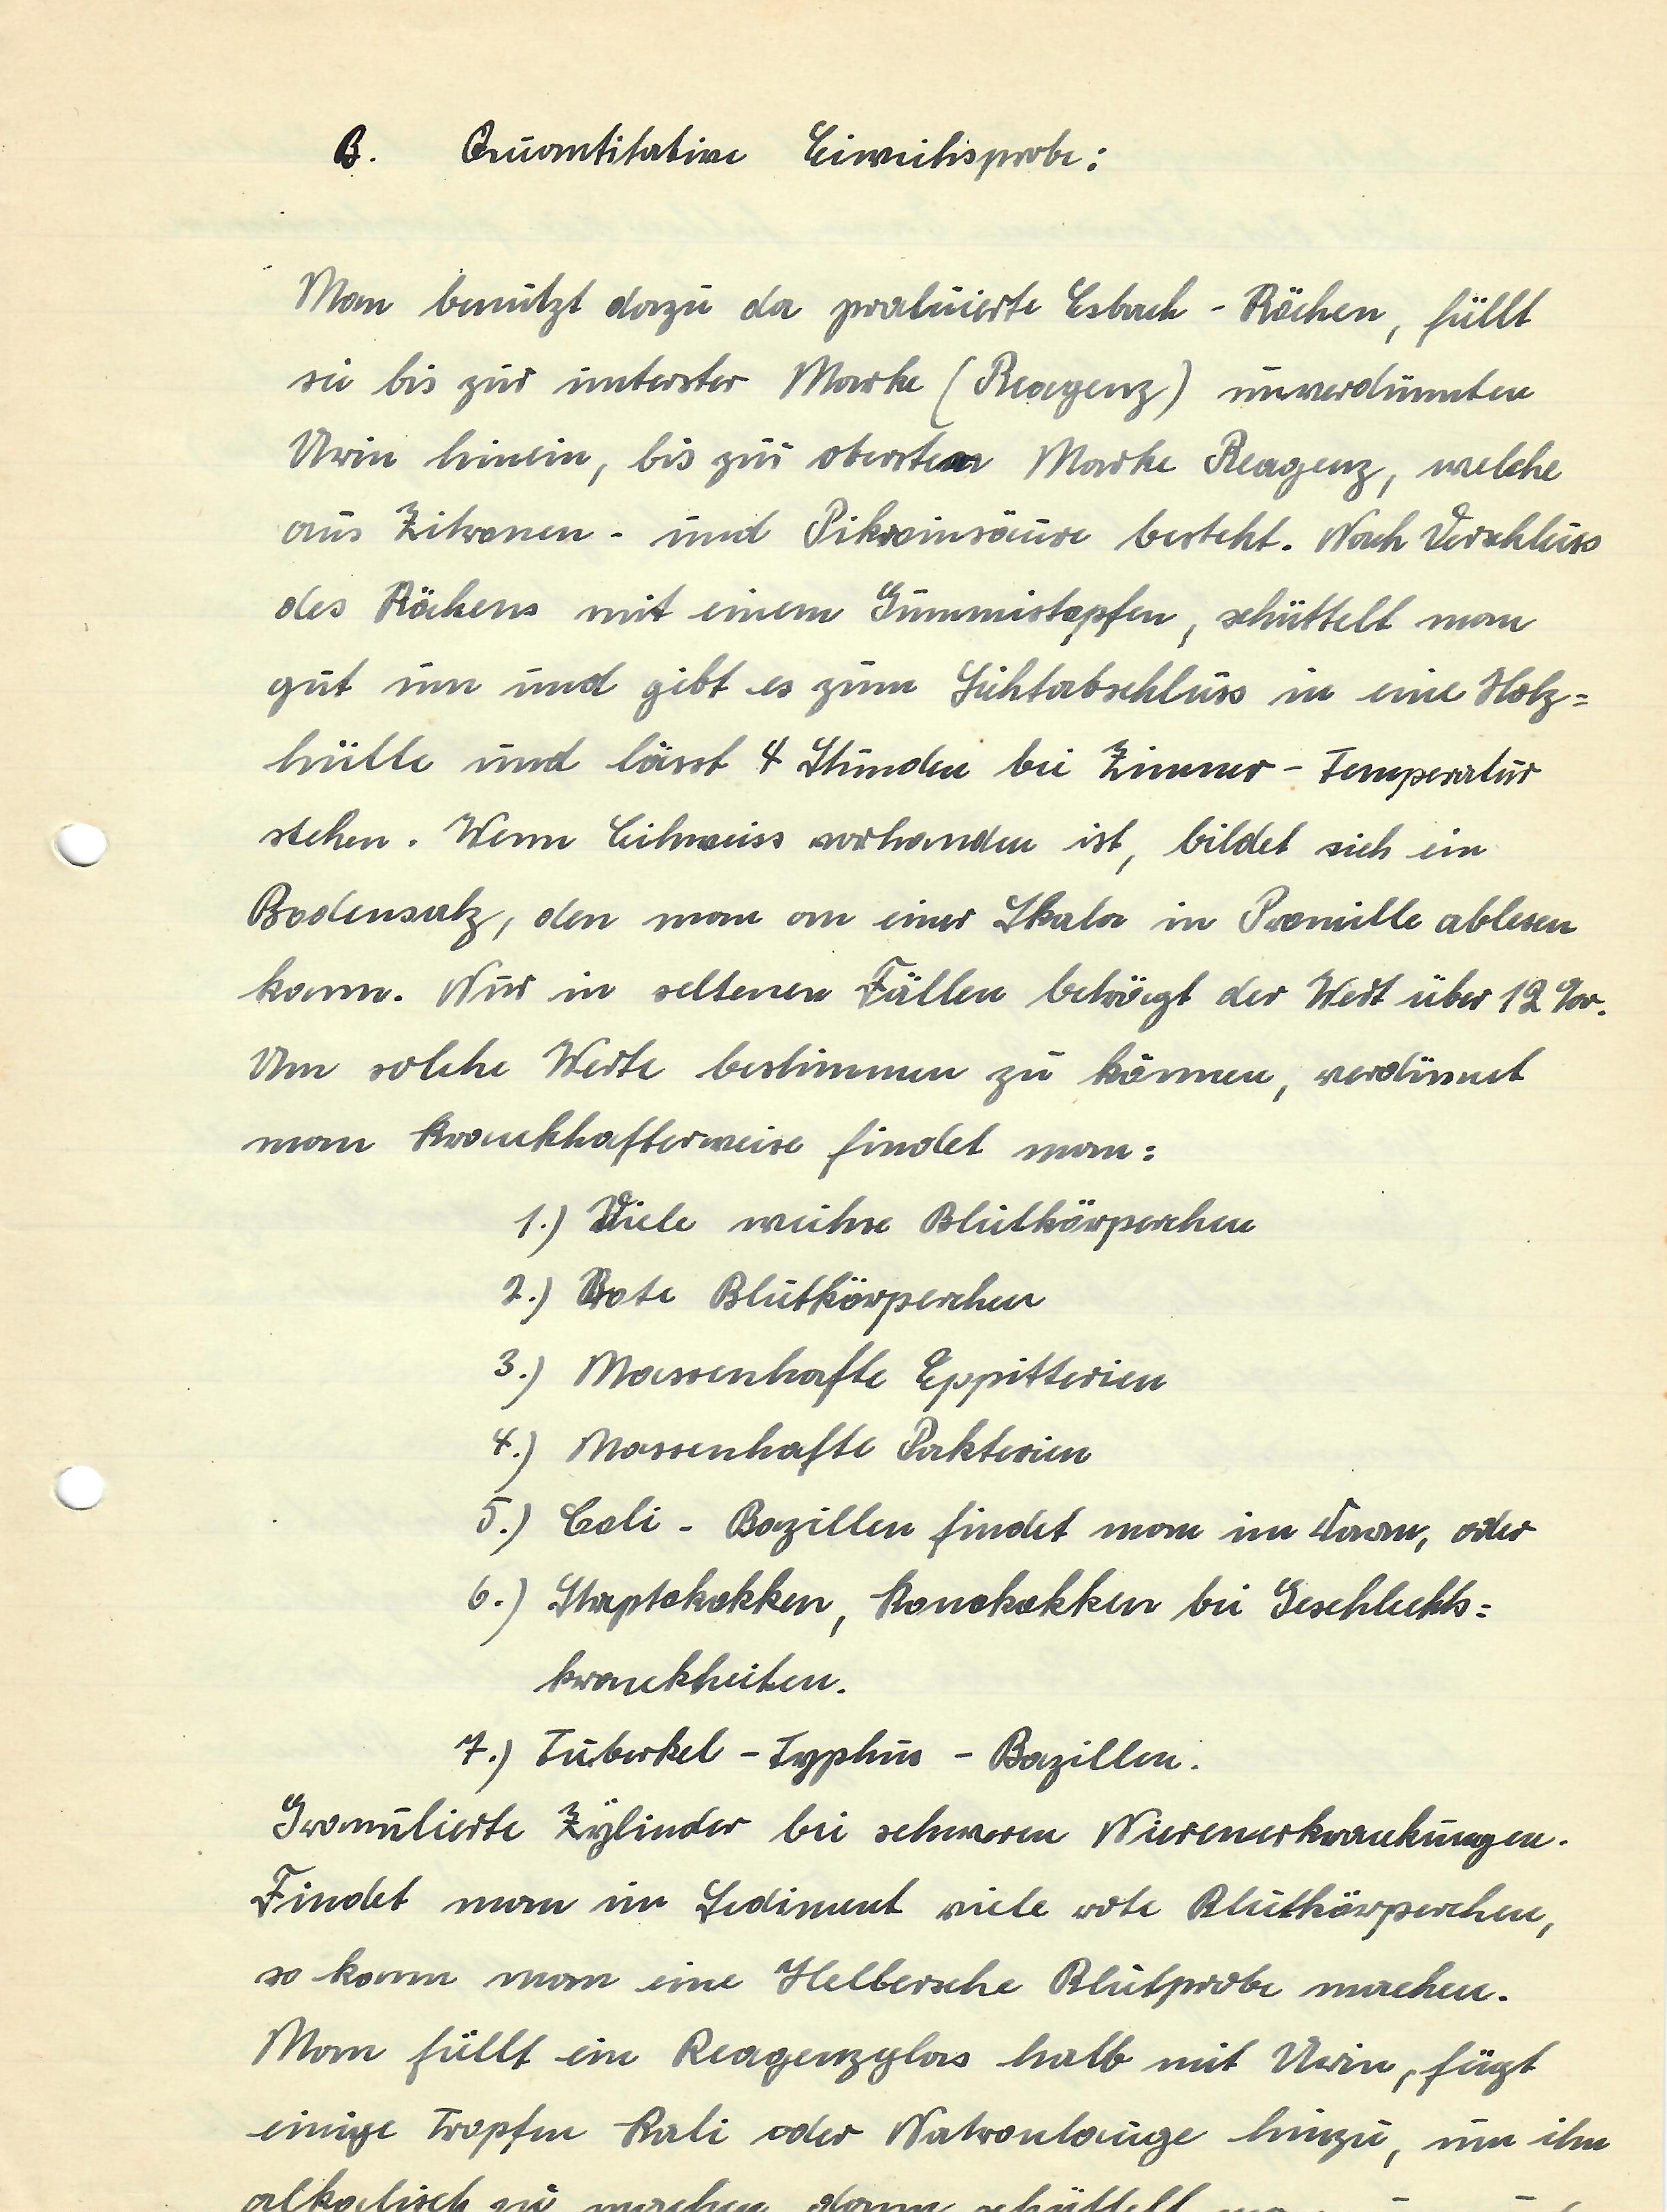 B. Quantitative Eiweihsprobe:
Man benützt dazu da graluierte Esbach - Röchen, füllt
sie bis zur unterster Marke (Reagenz) unverdünnten
Urin hinein, bis zur obersten Marke Reagenz, welche
aus Zitronen - und Pikroinsäure besteht. Nach Verschluss
des Röchens mit einem Gummistopfen, schüttelt man
gut um und gibt es zum Lichtabschluss in eine Holz=
hülle und lässt 4 Stunden bei Zimmer - Temperatur
stehen. Wenn Eihweiss vorhanden ist, bildet sich ein
Bodensatz, den man an einer Skala in Promille ablesen
kann. Nur in seltenen Fällen beträgt der Wert über 12 %o.
Um solche Werte bestimmen zu können, verdünnet
man krankhafterweise findet man:
1.) Viele weihse Blutkörperchen
2.) Rote Blutkörperchen
3.) Massenhafte Eppitterien
4.) Massenhafte Pakterien
5.) Coli - Bazillen findet man im oder
6.) Staptokokken, Konokokken bei Geschlechts=
krankheiten.
7.) Tuberkel - Typhus - Bazillen.
Granulierte Zÿlinder bei schweren Nierenerkrankungen.
Findet man im Sediment viele rote Blutkörperchen,
so kann man eine Hellersche Blutprobe machen.
Man füllt ein Reagenzglas halb mit Urin, fügt
einige Tropfen Kali oder Natronlauge hinzu, um ihn
alkalisch zu machen, dann schüttelt